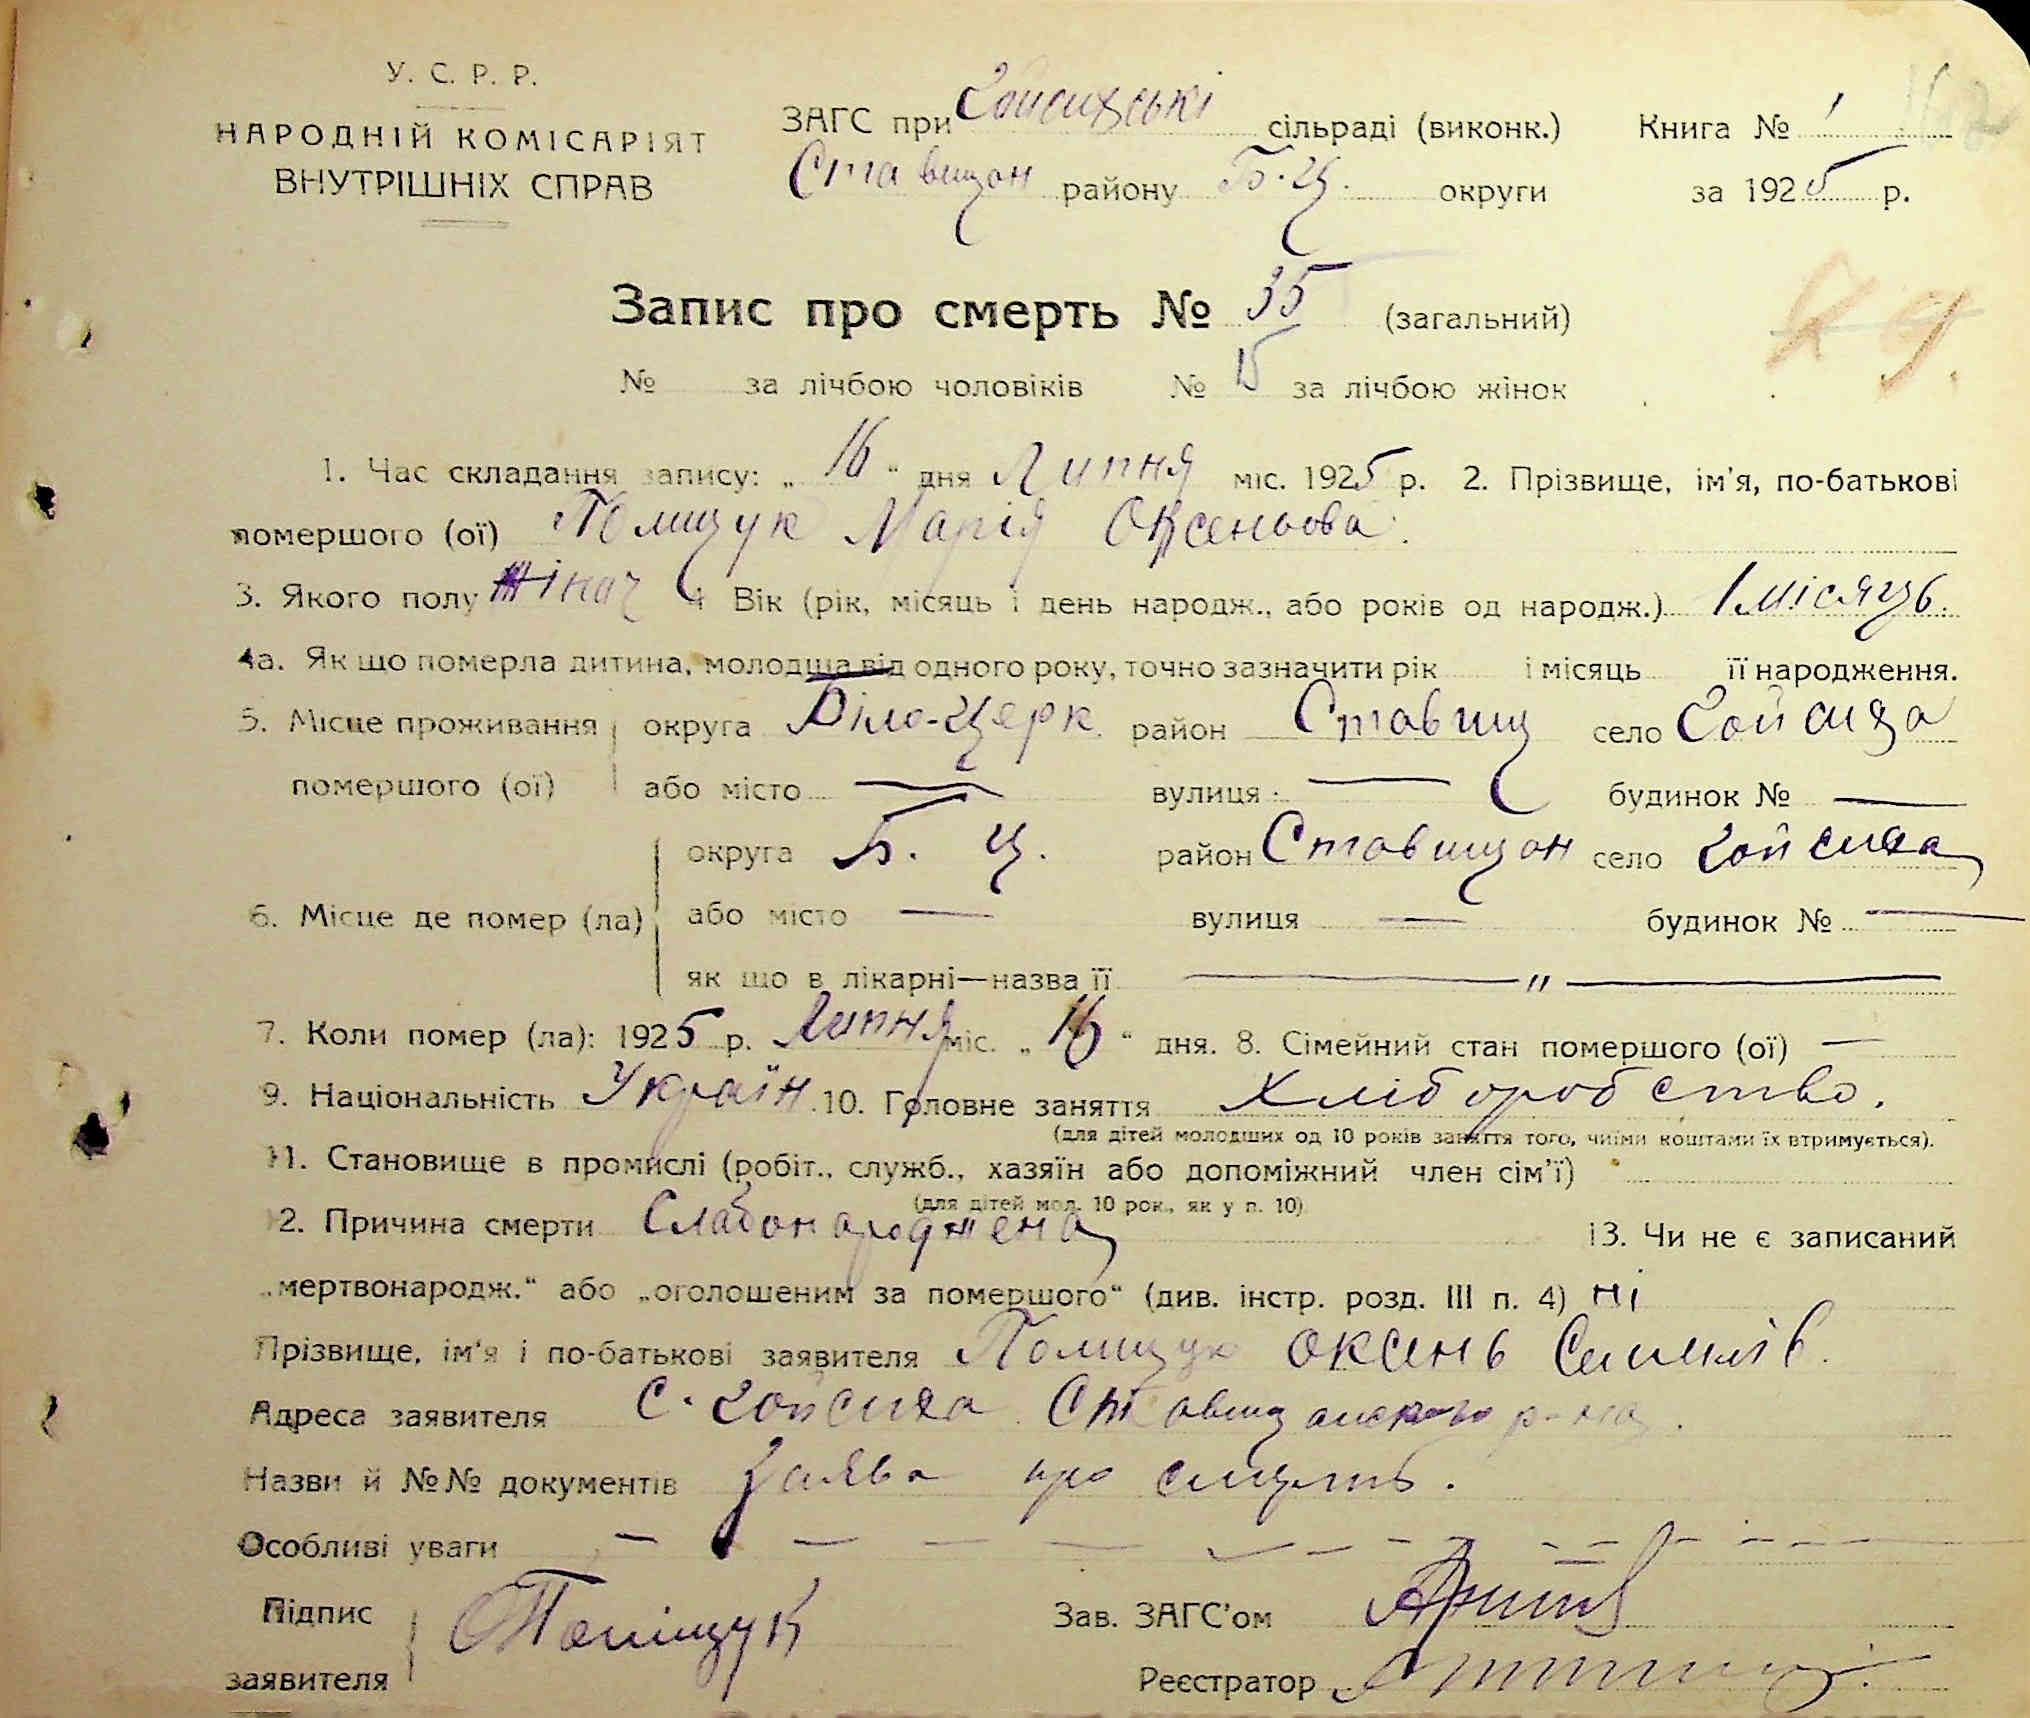 У. С. Р. Р.
НАРОДНІЙ КОМІСАРІЯТ
ВНУТРІШНІХ СПРАВ
ЗАГС при сільраді (виконк.) Книга № 1
Ставищан району Б.Ц. округи за 1925 р.
Запис про смерть № 35 (загальний)
№ за лічбою чоловіків № 15 за лічбою жінок
1. Час складання запису: „ 16 “ дня Липня міс. 1925 р. 2. Прізвище, ім'я, по-батькові
помершого (ої) Поліщук Марія Оксеньова.
3. Якого полу Жіноч 4 Вік (рік, місяць і день народж., або років од народж.) 1 місяць.
4а. Як що померла дитина, молодща від одного року, точно зазначити рік і місяць її народження.
5. Місце проживання округа Біло-Церк. район Ставищ село
помершого (ої) або місто — вулиця — будинок № —
округа Б. Ц. район Ставищан село
6. Місце де помер (ла) або місто — вулиця — будинок № —
як що в лікарні—назва її — „ —
7. Коли помер (ла): 1925 р. Липня міс. „ 16 “ дня. 8. Сімейний стан помершого (ої) —
9. Національність Україн. 10. Головне заняття Хліборобство.
(для дітей молодших од 10 років заняття того, чиїми коштами їх втримується).
11. Становище в промислі (робіт., служб., хазяїн або допоміжний член сім'ї)
(для дітей мол. 10 рок., як у п. 10)
12. Причина смерти Слабонароджена 13. Чи не є записаний
„мертвонародж.“ або „оголошеним за помершого“ (див. інстр. розд. III п. 4) ні
Прізвище, ім'я і по-батькові заявителя Полищук Оксень
Адреса заявителя с. Ставищанского р-на.
Назви й №№ документів Заява про смерть.
Особливі уваги — — — — — — —
Підпис
заявителя Поліщук
Зав. ЗАГС'ом
Реєстратор